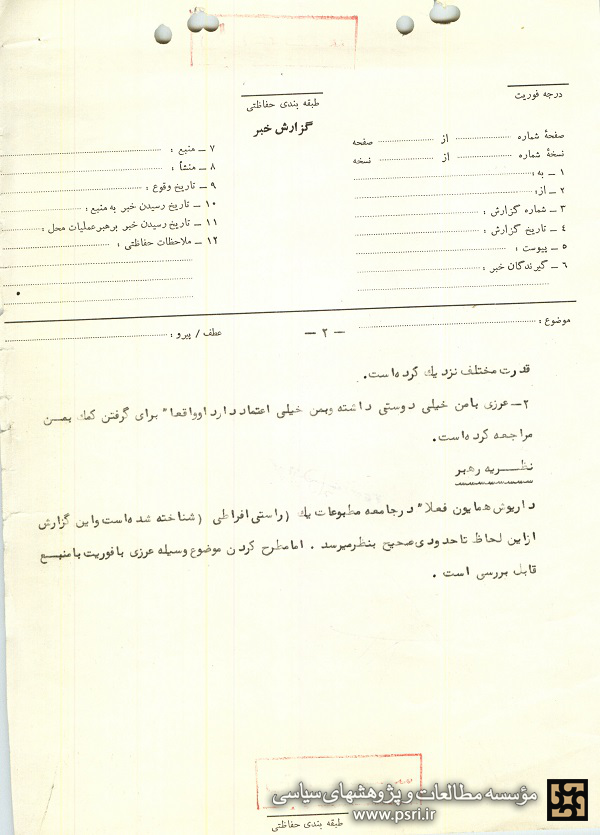 درجه فوریت
طبقه بندی حفاظتی
گزارش خبر
صفحهٔ شماره ............ از ............ صفحه
نسخهٔ شماره ............ از ............ نسخه
۱ ــ به :
۲ ــ از :
۳ ــ شماره گزارش :
۴ ــ تاریخ گزارش :
۵ ــ پیوست :
۶ ــ گیرندگان خبر :
۷ ــ منبع :
۸ ــ منشأ :
۹ ــ تاریخ وقوع :
۱۰ ــ تاریخ رسیدن خبر به منبع :
۱۱ ــ تاریخ رسیدن خبر برهبر عملیات محل :
۱۲ ــ ملاحظات حفاظتی :
موضوع :
ــ ۲ ــ
عطف / پیرو :
قدرت مختلف نزدیك کرده‌است.
۲ــ عرزی بامن خیلی دوستی داشته وبمن خیلی اعتماد دارد اوواقعا" برای گرفتن کمك بمــن
مراجعه کرده‌است.
نظــریه رهبر
داریوش همایون فعلا" درجامعه مطبوعات یك (راستی افراطی (شناخته شده‌است واین گزارش
ازاین لحاظ تاحدودی صحیح بنظرمیرسد . امامطرح کردن موضوع وسیله عرزی بافوریت بامنبــع
قابل بررسی است .
مؤسسه مطالعات و پژوهشهای سیاسی
www.psri.ir
طبقه بندی حفاظتی